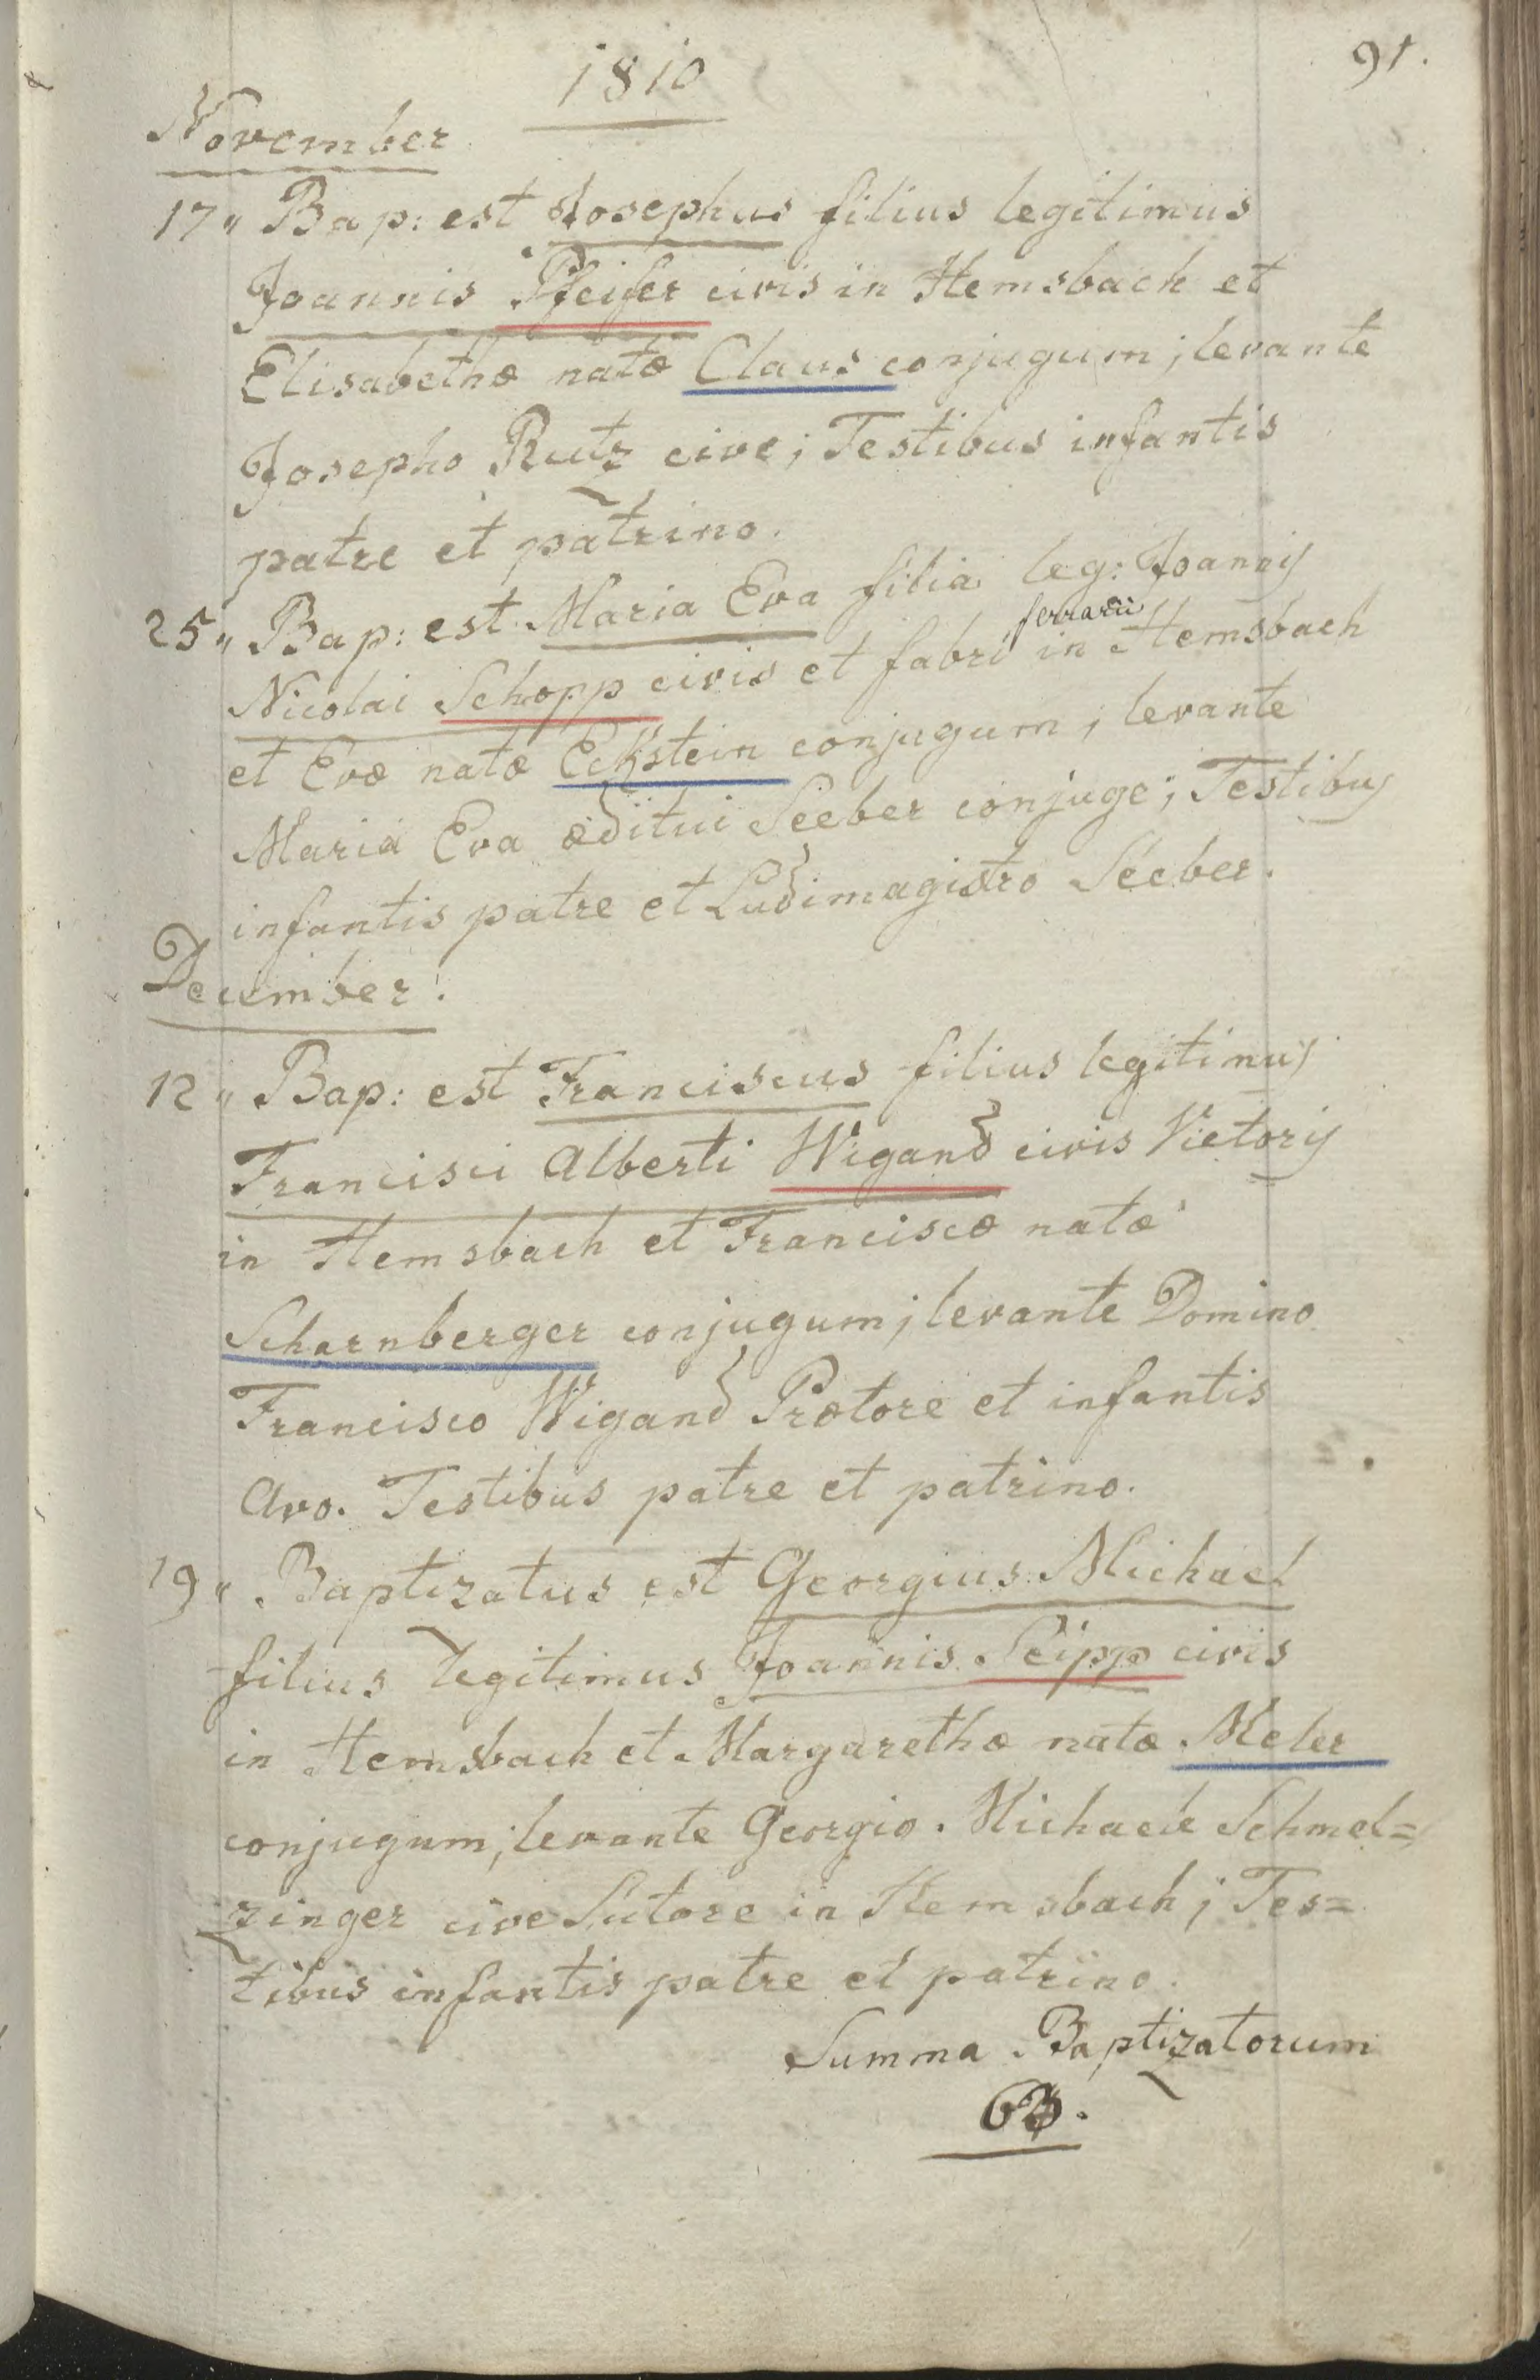 91.
1810
November
17„ Bap: est Josephus filius legitimus
Joannis Pfeifer civis in Hemsbach et
Elisabethæ natæ Claus conjugum; levante
Josepho Rutz cive; Testibus infantis
patre et patrino.
25„ Bap: est Maria Eva filia leg: Joannis
Nicolai Schopp civis et fabri ferrarii in Hemsbach
et Evæ natæ Eckstein conjugum; levante
Maria Eva æditui Seeber conjuge; Testibus
infantis patre et Ludimagistro Seeber.
December.
12„ Bap: est Franciscus filius legitimus
Francisci Alberti Wigand civis Vietoris
in Hemsbach et Franciscæ natæ
Scharnberger conjugum; levante Domino
Francisco Wigand Prætore et infantis
Avo. Testibus patre et patrino.
19„ Baptizatus est Georgius Michael
filius legitimus Joannis Seipp civis
in Hemsbach et Margarethæ natæ Meler
conjugum; levante Georgio Michaele Schmel=
zinger cive Sutore in Hemsbach; Tes=
tibus infantis patre et patrino.
Summa Baptizatorum